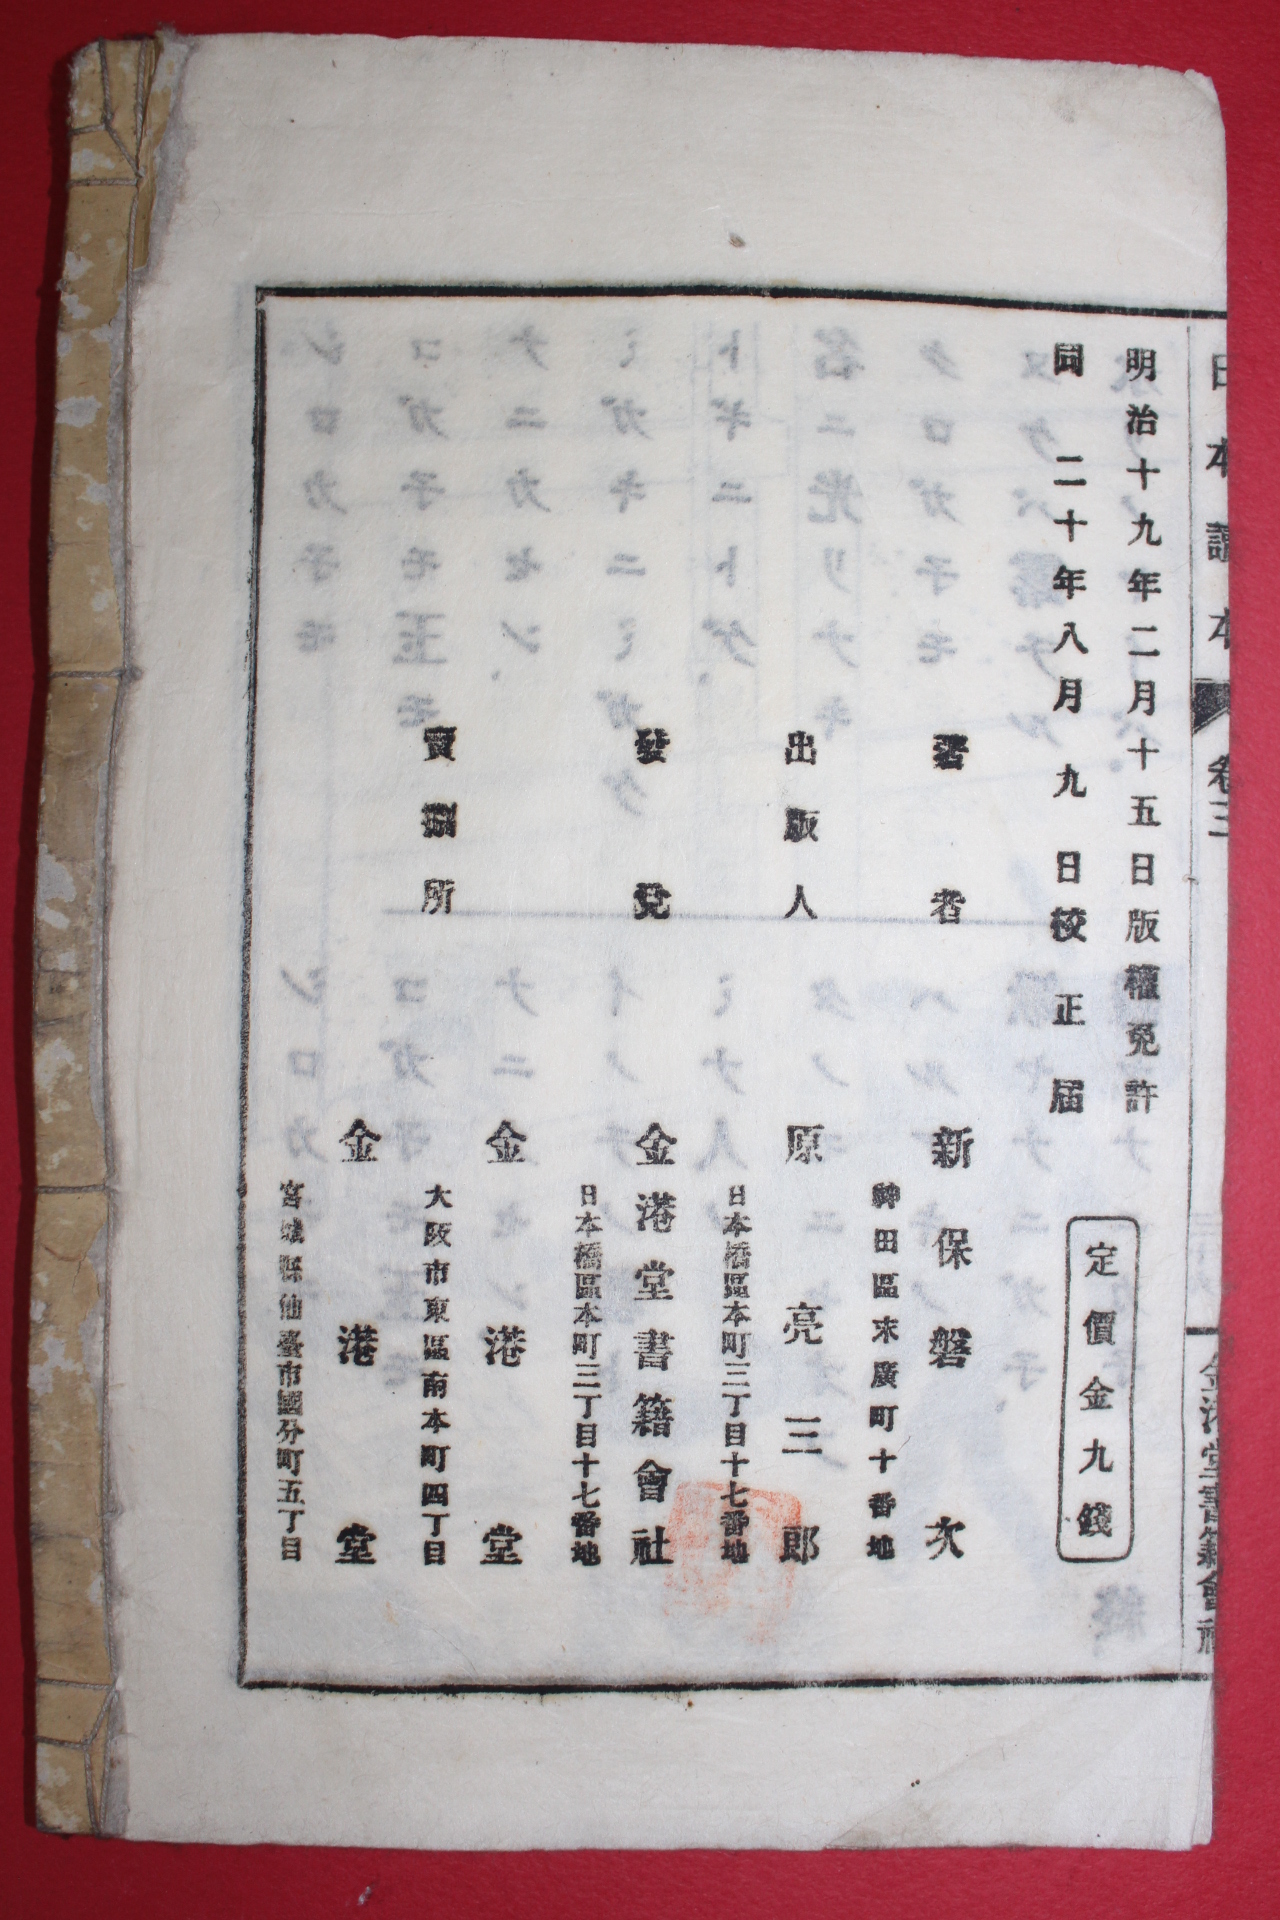 日本讀本
卷三
金港堂書籍會社
明治十九年二月十五日版權免許
同 二十年八月九日校正屆
定價金九錢
著者 新保磐次
神田區末廣町十番地
出版人 原亮三郎
日本橋區本町三丁目十七番地
發兌 金港堂書籍會社
日本橋區本町三丁目十七番地
賣捌所 金港堂
大阪市東區南本町四丁目
金港堂
宮城縣仙臺市國分町五丁目